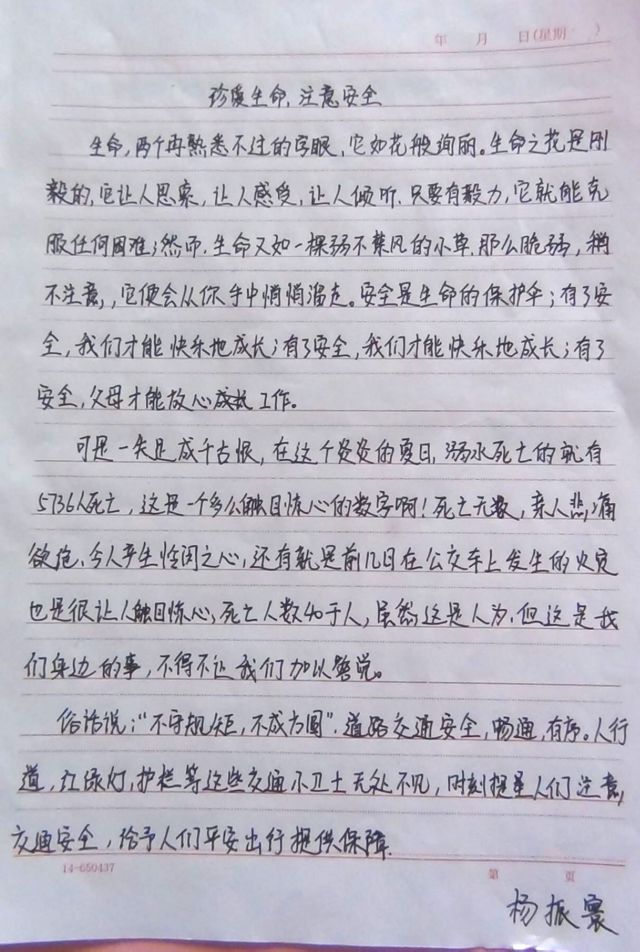 年 月 日(星期 )
珍爱生命,注意安全
生命,两个再熟悉不过的字眼,它如花般绚丽。生命之花是刚
毅的,它让人思索,让人感受,让人倾听.只要有毅力,它就能克
服任何困难;然而.生命又如一棵弱不禁风的小草.那么脆弱,稍
不注意,,它便会从你手中悄悄溜走。安全是生命的保护伞;有了安
全,我们才能快乐地成长;有了安全,我们才能快乐地成长;有了
安全,父母才能放心成长工作。
可是一失足成千古恨,在这个炎炎的夏日,溺水死亡的就有
5736人死亡,这是一个多么触目惊心的数字啊!死亡无数,亲人悲痛
欲绝、令人产生怜闵之心,还有就是前几日在公交车上发生的火灾
也是很让人触目惊心,死亡人数40于人,虽然这是人为.但这是我
们身边的事,不得不让我们加以警觉。
俗话说;“不守规矩,不成方圆”.道路交通安全,畅通,有序。人行
道,红绿灯,护栏等这些交通小卫士无处不见,时刻提星人们注意,
交通安全,给予人们平安出行提供保障.
14-650437 第 页
杨振寰